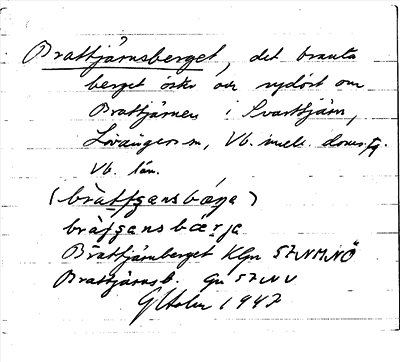 Brattjärnsberget, det branta
berget öster och sydöst om
Brattjärnen i Svarttjärn,
Lövångers sn, Vb. mell. doms.
Vb. län.
(bràttʃɛ̨ansbæ̨rja)
bràfʃɛ̨ansbæ̨rja
Brattjärnberget KGn 57NMNÖ
Brattjärnsb. Gn 57NV
G Holm 1947